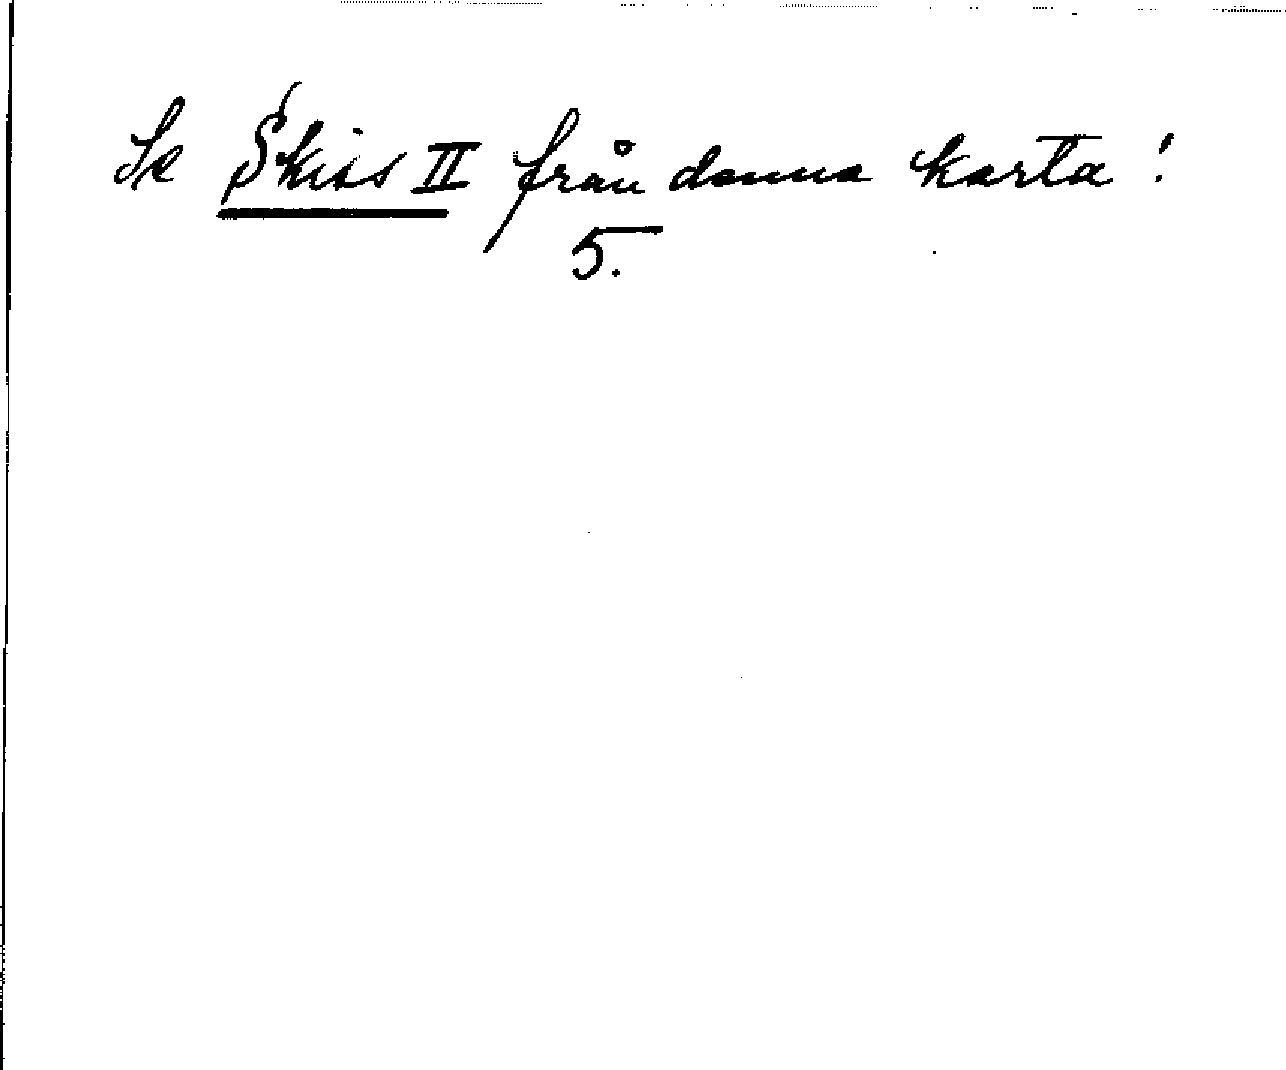 Se Skiss II från denna karta!
5.